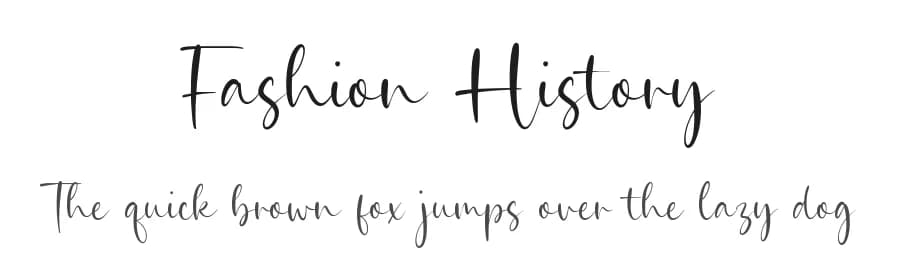 Fashion History
The quick brown fox jumps over the lazy dog